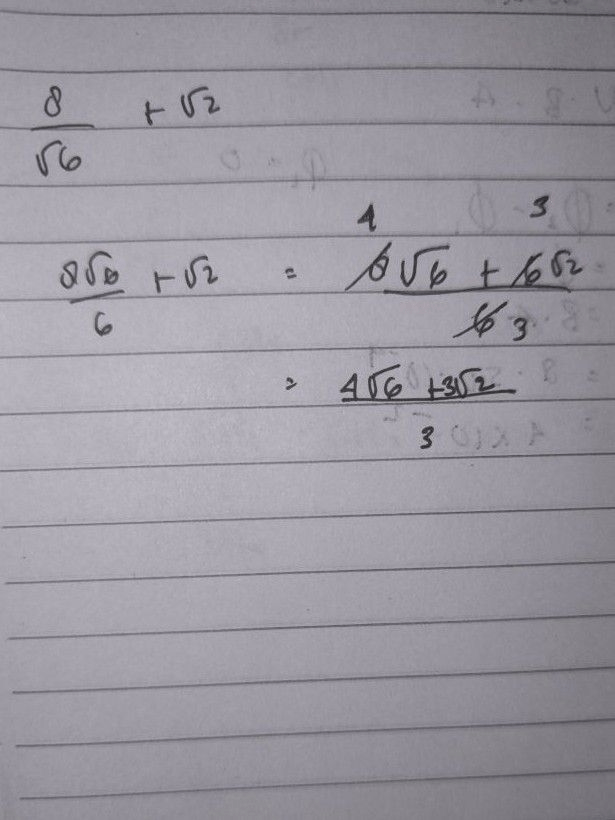 8/√6 + √2
8√6/6 + √2 = (8√6 + 6√2)/6 4 3 3
= (4√6 + 3√2)/3